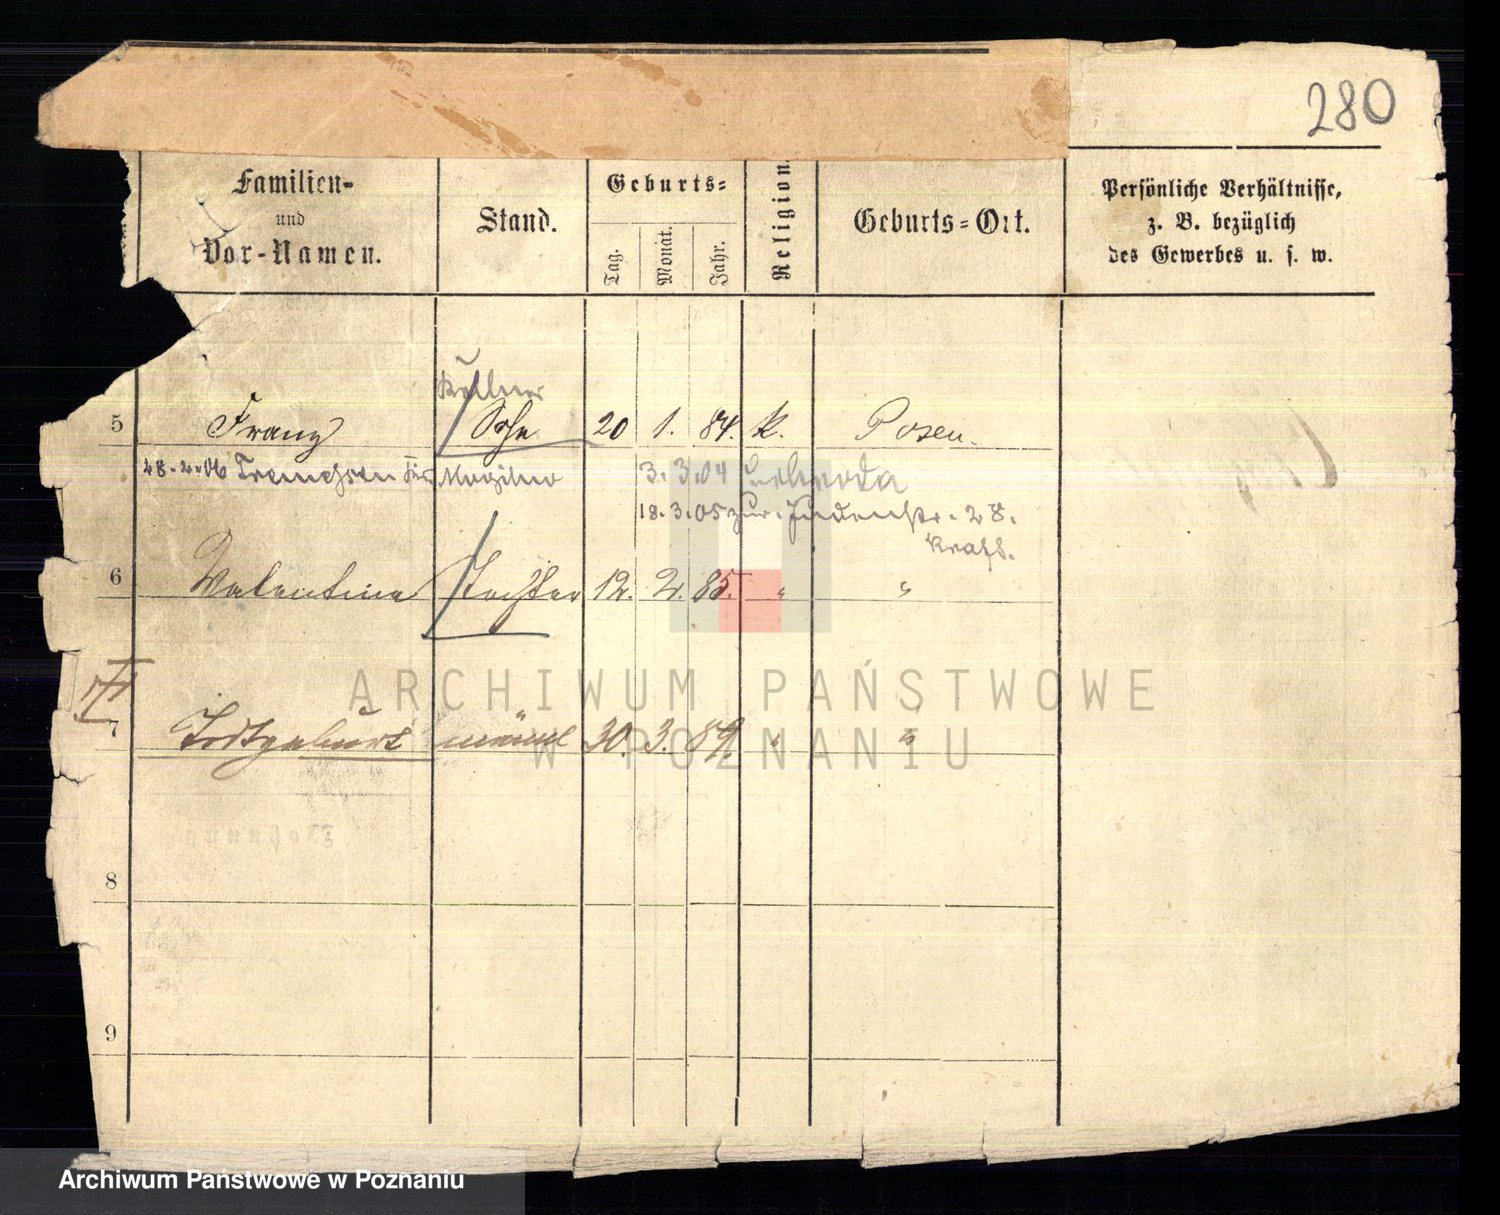 280
Familien-
und
Vor-Namen.
Stand.
Geburts-
Tag.
Monat.
Jahr.
Religion.
Geburts-Ort.
Persönliche Verhältnisse,
z. B. bezüglich
des Gewerbes u. s. w.
Kellner
5 Franz Sohn 20 1. 84. k. Posen.
28.2.06 Tremessen Krs. Mogilno 3.3.04
18.3.05 zur. Judenstr. 28.
Kraft.
6 Valentine Tochter 12. 2. 85. " "
7 Todtgeburt männl 30. 3. 89. " "
8
9
ARCHIWUM PAŃSTWOWE
W POZNANIU
Archiwum Państwowe w Poznaniu